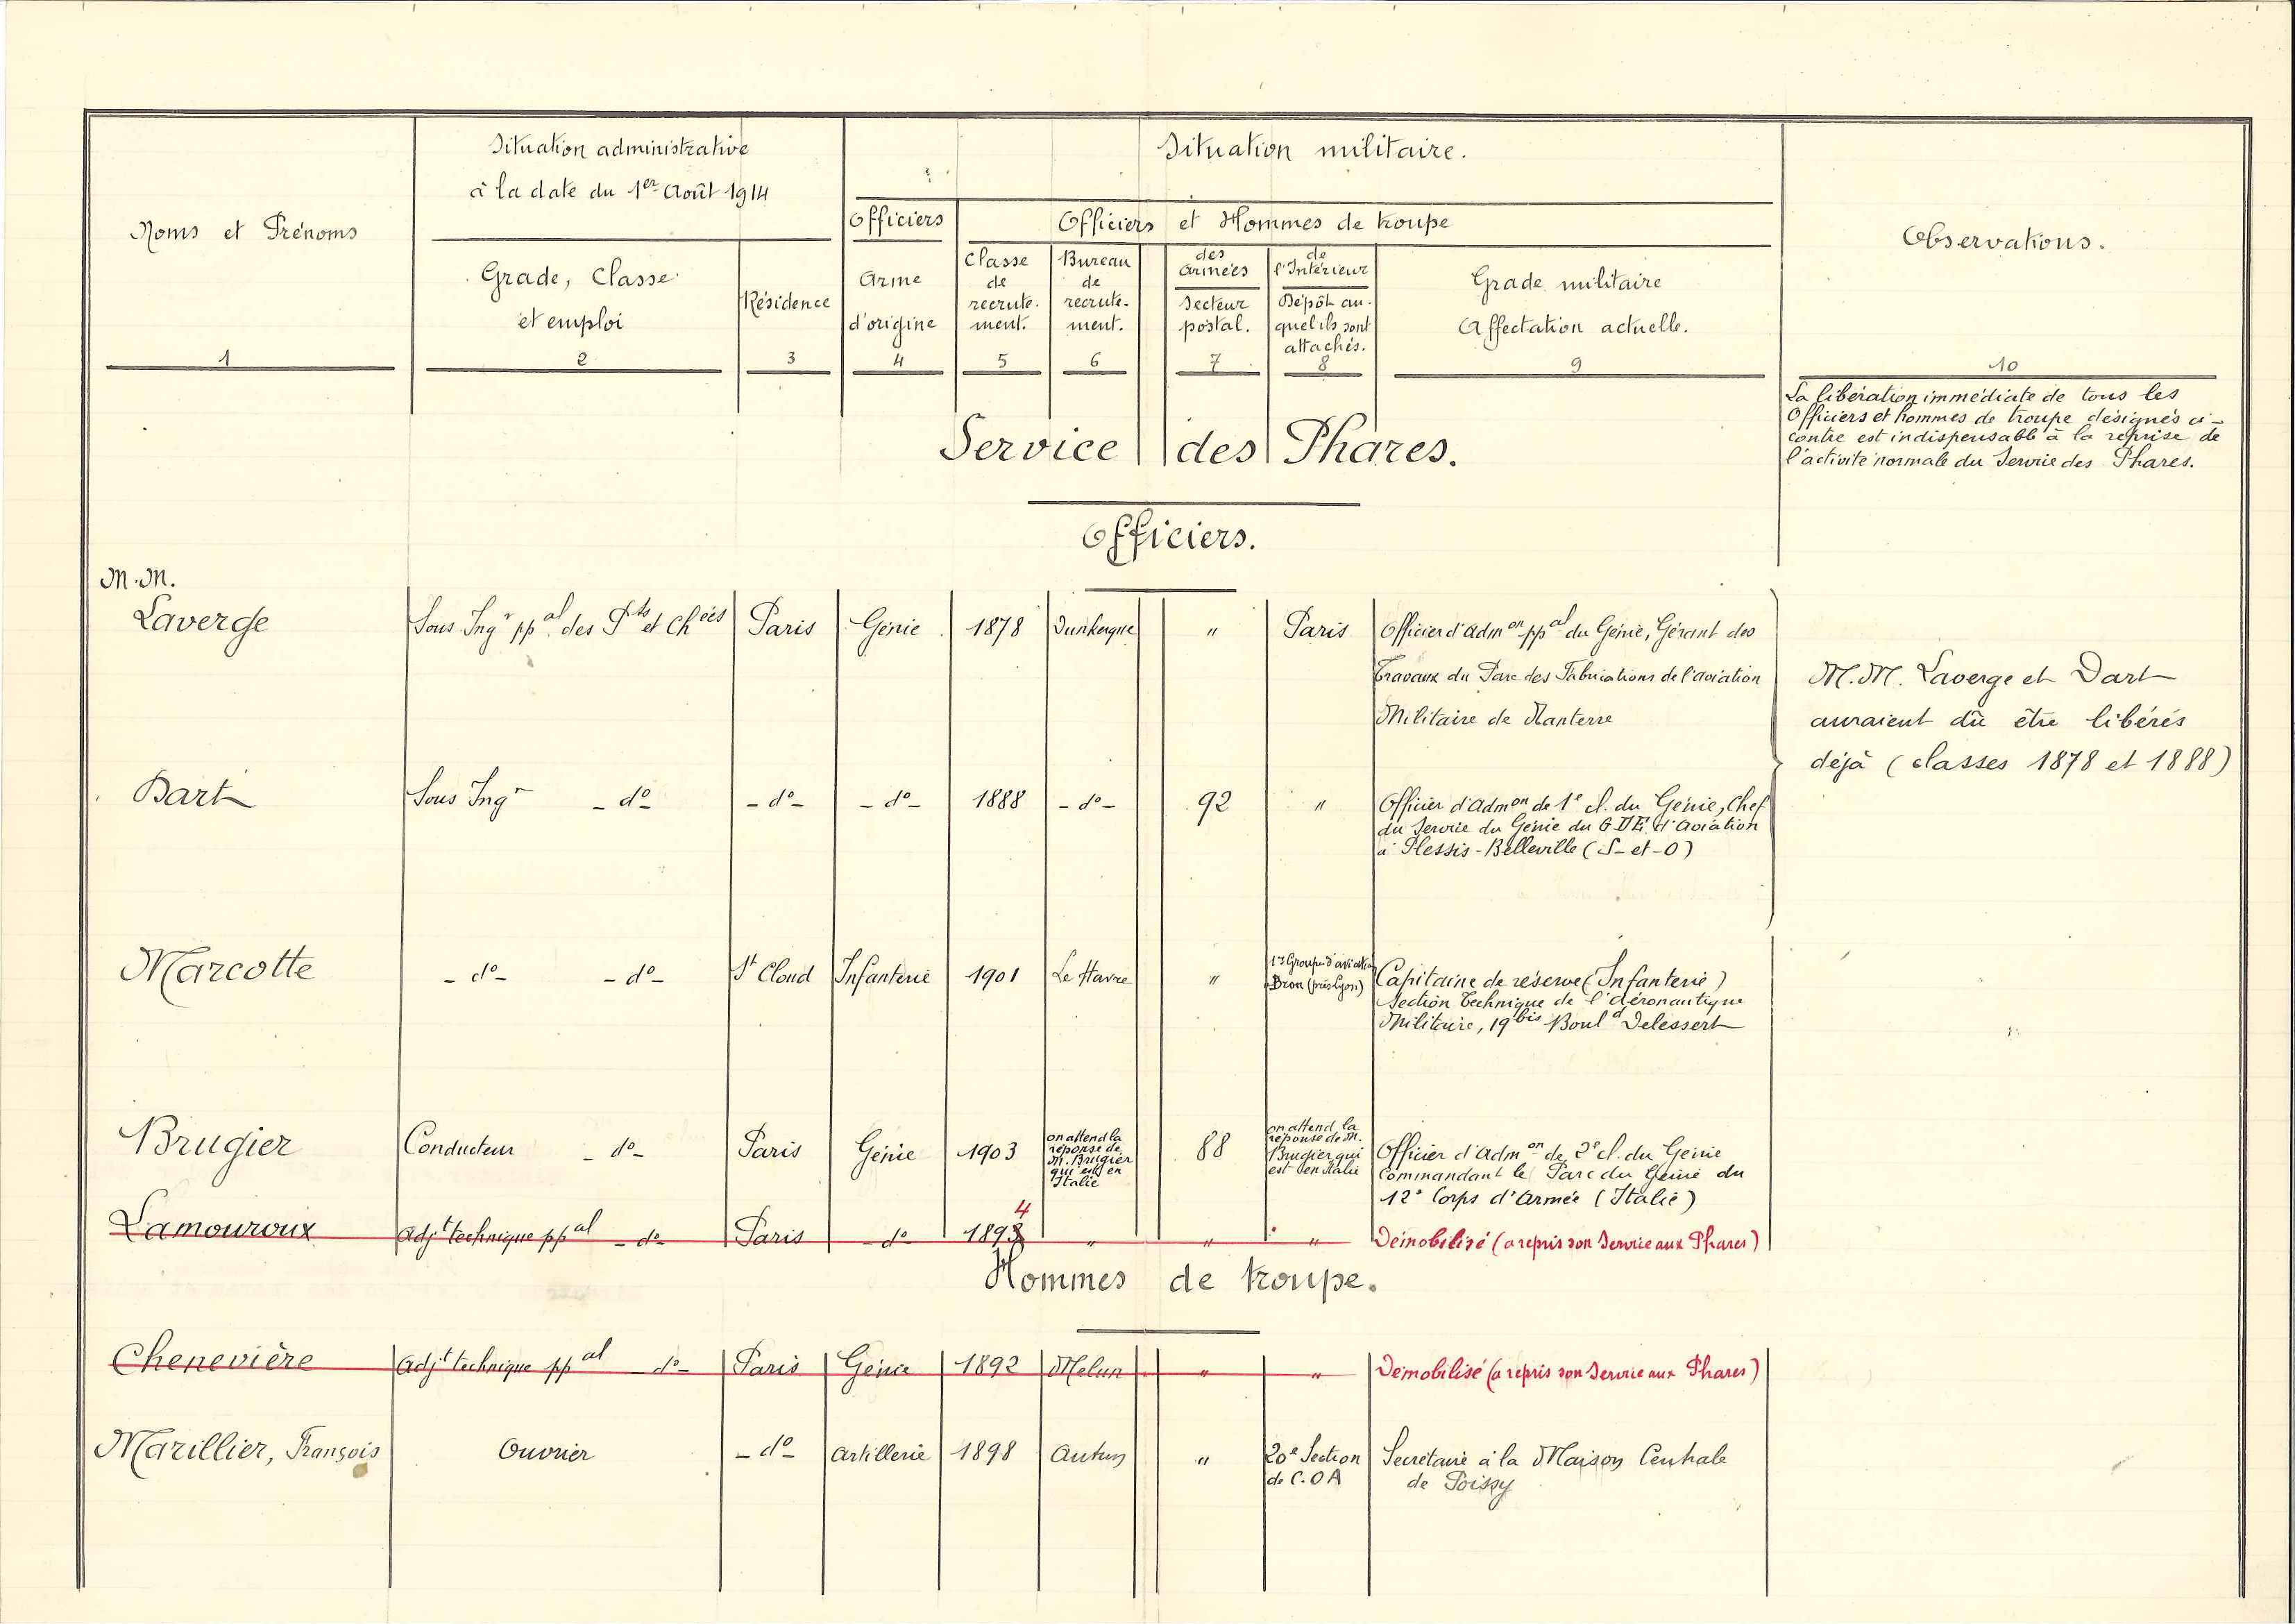 Noms et Prénoms
1
Situation administrative
à la date du 1er Août 1914
Grade, Classe
et emploi
2
Résidence
3
Situation militaire.
Officiers
Arme
d'origine
4
Officiers et Hommes de troupe
Classe
de
recrute-
ment.
5
Bureau
de
recrute-
ment.
6
des
Armées
Secteur
postal.
7
de
l'Intérieur
Dépôt au-
quel ils sont
attachés.
8
Grade militaire
Affectation actuelle.
9
Observations.
10
La libération immédiate de tous les
Officiers et hommes de troupe désignés ci-
contre est indispensable à la reprise de
l'activité normale du Service des Phares.
Service des Phares.
Officiers.
M.M.
Laverge
Sous Ingr ppal des Pts et Chées
Paris
Génie
1878
Dunkerque
"
Paris
Officier d'Admon ppal du Génie, Gérant des
Travaux du Parc des Fabrications de l'aviation
Militaire de Nanterre
M.M. Laverge et Dart
auraient dû être libérés
déjà (classes 1878 et 1888)
Bart
Sous Ingr - do -
- do -
- do -
1888
- do -
92
"
Officier d'Admon de 1e cl. du Génie, Chef
du Service du Génie du G D E d'Aviation
à Plessis-Belleville (S-et-O)
Marcotte
- do - - do -
St Cloud
Infanterie
1901
Le Havre
"
1er Groupe d'aviation
Bron (près Lyon)
Capitaine de réserve (Infanterie)
Section Technique de l'aéronautique
Militaire, 19bis Bould Delessert
Brugier
Conducteur - do -
Paris
Génie
1903
on attend la
réponse de
M. Brugier
qui est en
Italie
88
on attend la
réponse de M.
Brugier qui
est en Italie
Officier d'Admon de 2e cl. du Génie
Commandant le Parc du Génie du
12e Corps d'Armée (Italie)
Lamouroux
Adjt technique ppal - do -
Paris
do
1893
4
"
"
"
Démobilisé (a repris son Service aux Phares)
Hommes de troupe.
Chenevière
Adjt technique ppal - do -
Paris
Génie
1892
Melun
"
"
Démobilisé (a repris son Service aux Phares)
Marillier, François
Ouvrier
- do -
Artillerie
1898
Autun
"
20e Section
de C.O A
Secrétaire à la Maison Centrale
de Poissy